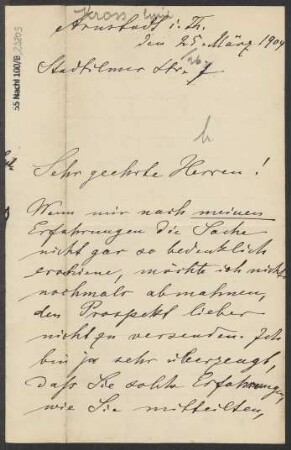 Kross, Emil
Arnstadt i. Th.
den 25. März 1909
26.
Stadtilmer Str. 7
55 Nachl 100/B
Sehr geehrte Herren!
Wenn mir nach meinen
Erfahrungen die Sache
nicht gar so bedenklich
erschiene, möchte ich nicht
nochmals abmahnen,
den Prospekt lieber
nicht zu versenden. Ich
bin ja sehr überzeugt,
daß Sie solche Erfahrungen,
wie Sie mitteilten,